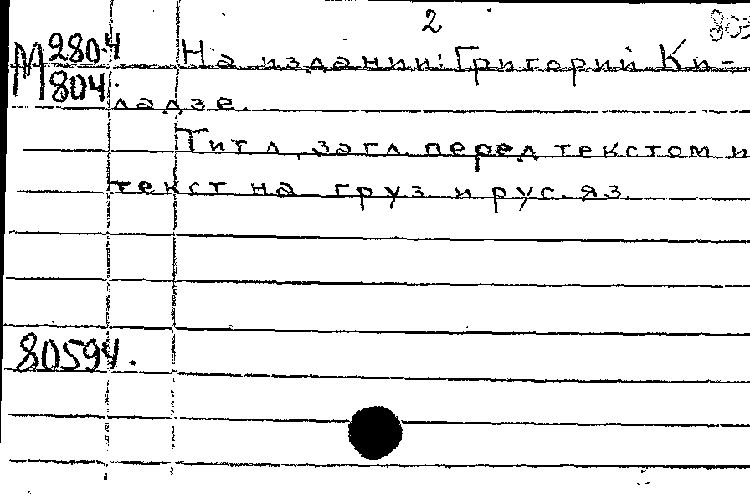 2
803
М 2804
804
На издании: Григорий Ки-
ладзе.
Тит л, загл перед текстом и
текст на груз и рус. яз.
80594.